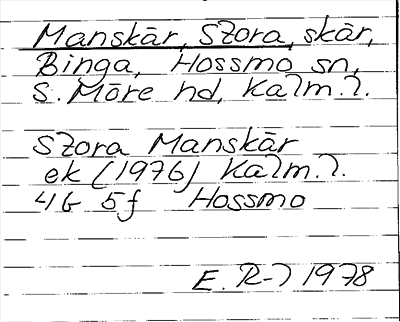 Manskär, Stora, skär,
Binga, Hossmo sn,
S. Möre hd, Kalm. l.
Stora Manskär
ek (1976) Kalm. l.
4G 5f Hossmo
E. R-l 1978